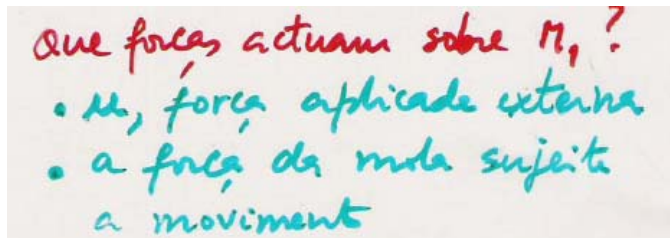 Que forças actuam sobre M₁?
• u, força aplicada externa
• a força da mola sujeita
a movimento